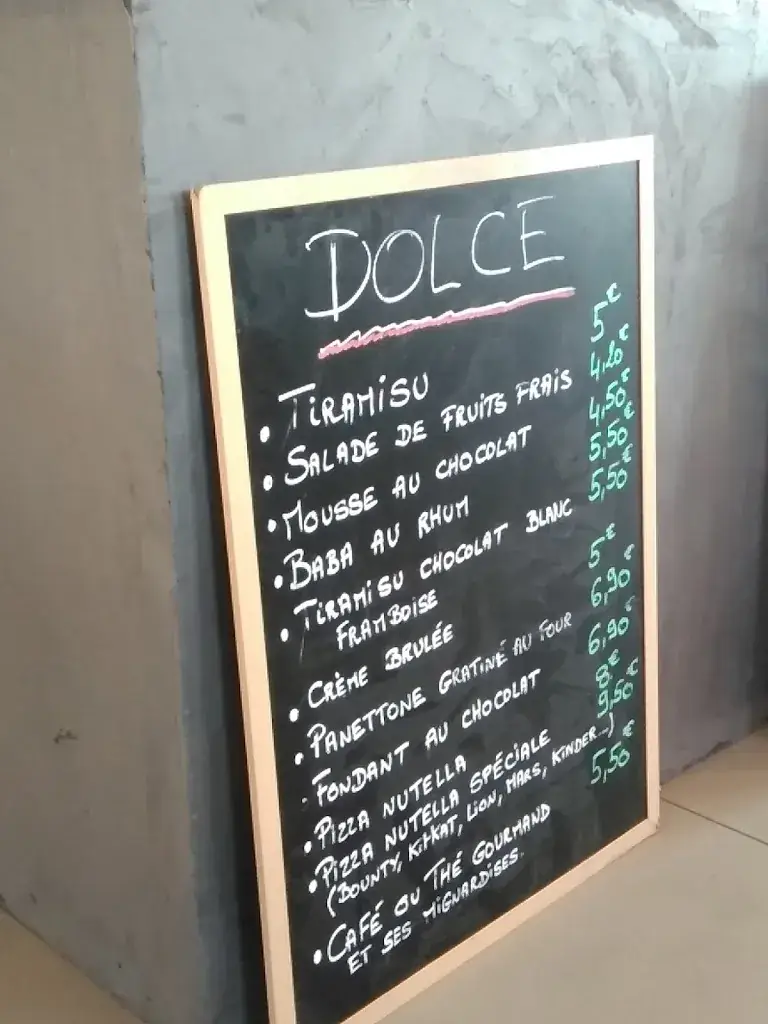 DOLCE
• TIRAMISU 5€
• SALADE DE FRUITS FRAIS 4,20€
• MOUSSE AU CHOCOLAT 4,50€
• BABA AU RHUM 5,50€
• TIRAMISU CHOCOLAT BLANC 5,50€
FRAMBOISE
• CRÈME BRULÉE 5€
• PANETTONE GRATINÉ AU FOUR 6,90€
• FONDANT AU CHOCOLAT 6,90€
• PIZZA NUTELLA 8€
• PIZZA NUTELLA SPÉCIALE 9,50€
(BOUNTY, KITKAT, LION, MARS, KINDER...)
• CAFÉ OU THÉ GOURMAND 5,50€
ET SES MIGNARDISES.